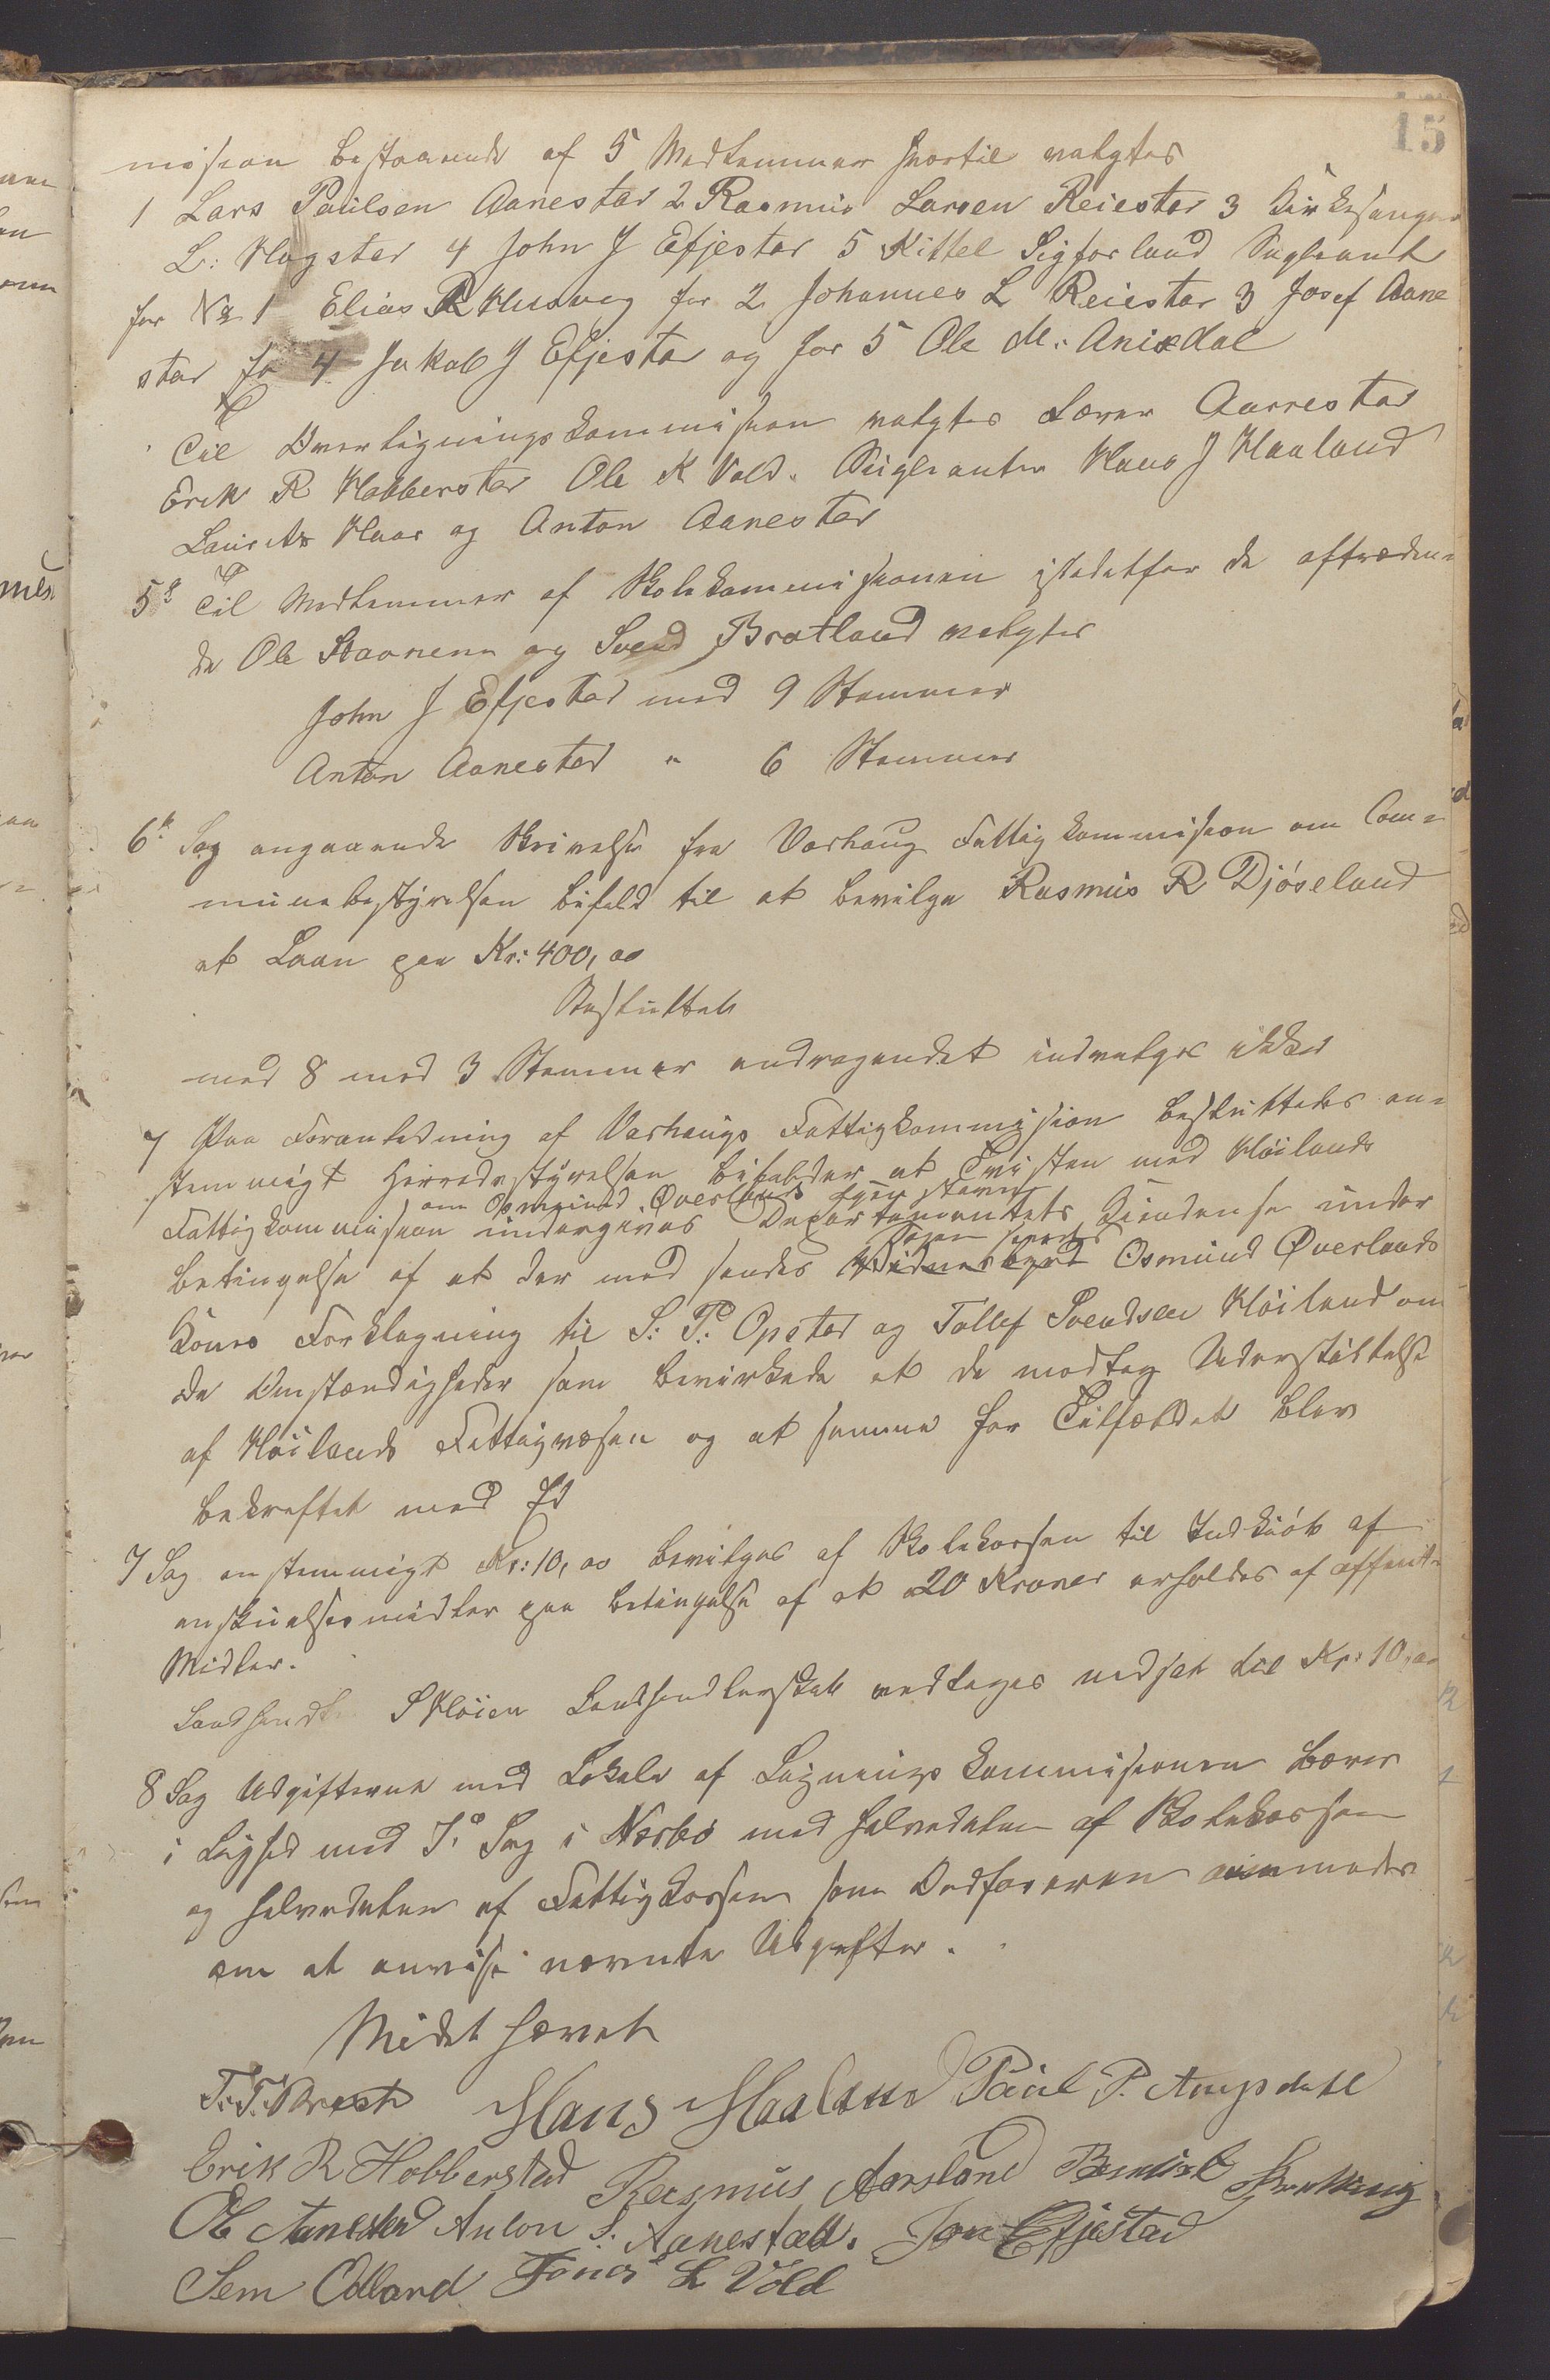 15
mission bestaaende af 5 Medlemmer hvortil valgtes
1 Lars Paulsen Aanestad 2 Rasmus Larsen Reiestad 3 Kirkesanger
L: Hogstad 4 John J Efjestad 5 Kittel Sigforland Supleant
for No 1 Elias R Husveg for 2 Johannes L Reiestad 3 Josef Aane
stad for 4 Jakob J Efjestad og for 5 Ole M: Anisdal
Til Overligningskommission valgtes Lærer Aarrestad
Erik R Hobberstad Ole K Vold. Supleanter Hans J Haaland
Laurits Haar og Anton Aanestad
5te Til Medlemmer af Skolekommissionen istedetfor de aftræden=
de Ole Stavnem og Svend Bratland valgtes
John J Efjestad med 9 Stemmer
Anton Aanestad " 6 Stemmer
6te Sag angaaende Skrivelse fra Varhaug Fattigkommission om Com=
munebestyrelsen bifald til at bevilge Rasmus R Djøseland
et Laan paa Kr: 400,00
Besluttet
med 8 mod 3 Stemmer andragendet indvilges ikke
7 Paa Foranledning af Varhaugs Fattigkommission besluttedes en=
stemmigt Herredsstyrelsen bifalder at Tvisten med Höilands
om Osmund Øverlands
Fattigkommission undergives Departementets Kjendelse under
betingelse af at der med sendes Osmund Øverlands
Kones Forklagning til S. P. Opstad og Tollef Svendsen Höiland om
de Omstændigheder som bevirkede at de modtog Understøttelse
af Höilands Fattigvæsen og at samme for Tilfældet blev
bekræftet med Ed
7 Sag enstemmigt Kr: 10,00 bevilges af Skolekassen til Indkiöb af
anskuelsesmidler paa betingelse af at 20 Kroner erholdes af offentl.
Midler.
Landhandl. S Höien Landhandlerskat vedtages nedsat til Kr: 10,00
8 Sag Udgifterne med Lokale af Ligningskommissionen bæres
i Lighed med 7de Sag i Nærbö med halvdelen af Skolekassen
og halvdelen af Fattigkassen som Ordføreren anmodes
om at anvise nævnte Udgifter.
Mödet hævet
T. T. Hans Haaland Paul P. Augsdahl
Erik R Hobberstad Rasmus Aarsland
Ole Aanestad Anton S. Aanestad. Jon Efjestad
Sem Odland Jonas L Vold